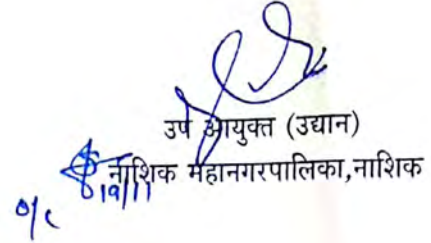 उप आयुक्त (उद्यान)
नाशिक महानगरपालिका,नाशिक
19/11
o/c